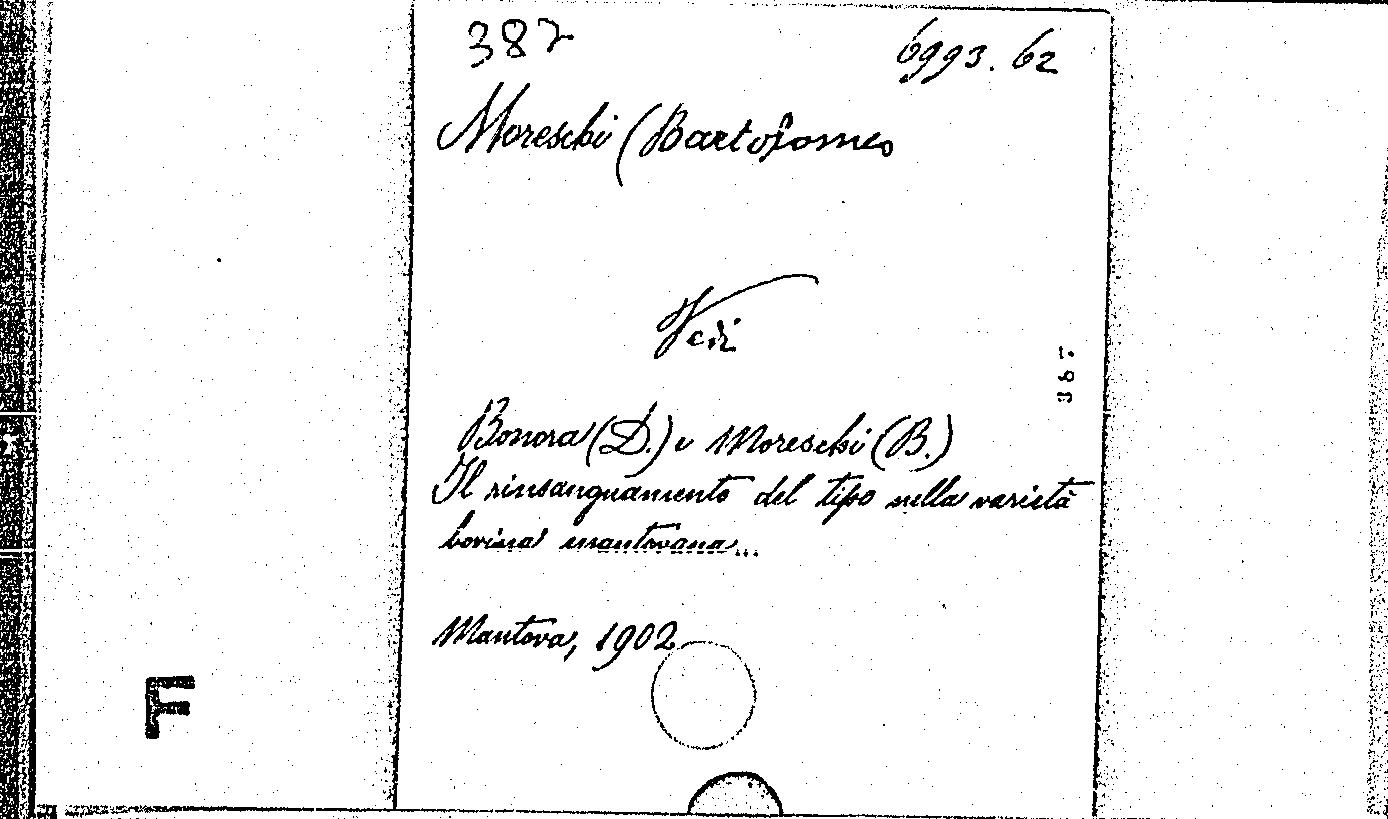 387 6993.62
Moreschi (Bartolomeo
Vedi
387
Bonora (D.) e Moreschi (B.)
Il rinsanguamento del tipo nella varietà
bovina mantovana...
Mantova, 1902
F